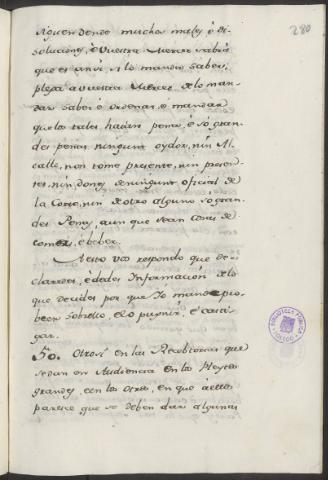 280
siguen dende muchos males é di-
soluciones, é vuestra merced sabrá
que es ansí, si lo manda saber,
plega a vuestra merced de lo man-
dar saber é ordenar, é mandar
que los tales hayan pena, é só gran-
des penas ningunt oydor, nin Al-
calle, non tome presente, nin presen-
tes, nin dones de ningunt oficial de
la Corte, nin de otro alguno so gran-
des Penas, aunque sean cosas de
comer, é beber.
A esto vos respondo que de-
claredes, é dedes Informacion de lo
que decides por que Yo mande pro-
beer sobrello, é lo pugnir, é casti-
gar.
50. Otrosi en las Receptorias que
se dan en Audiencia en los Pleytos
grandes, con los otros, en que á ellos
paresce que se deben dar algunas
BIBLIOTECA PUBLICA
TOLEDO